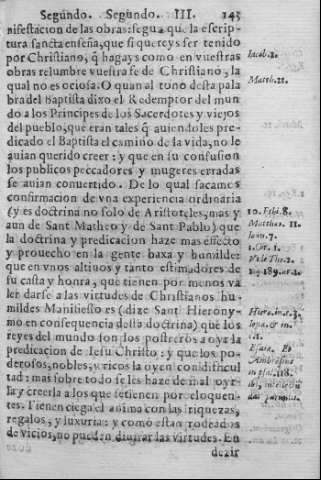 Segundo. Segundo. III. 143
nifestacion de las obras: segũ q̃ la escrip
tura sancta enseña, que si quereys ser tenido
por Christiano, q̃ hagays como en vuestras
obras relumbre vuestra fe de Christiano, la
qual no es ociosa. O quan al tono desta pala
bra del Baptista dixo el Redemptor del mun
do a los Principes de los Sacerdotes y viejos
del pueblo, que eran tales q̃ auiendoles pre-
dicado el Baptista el camino de la vida, no le
auian querido creer: y que en su confusion
los publicos peccadores y mugeres erradas
se auian conuertido. De lo qual sacamos
confirmacion de vna experiencia ordinaria
(y es doctrina no solo de Aristoteles, mas y
aun de Sant Matheo y de Sant Pablo) que
la doctrina y predicacion haze mas effecto
y prouecho en la gente baxa y humilde:
que en vnos altiuos y tanto estimadores de
su casta y honra, que tienen por menos va
ler darse a las virtudes de Christianos hu-
mildes Manifiesto es (dize Sant Hierony-
mo en consequencia desta doctrina) que los
reyes del mundo son los postreros a oyr la
predicacion de Iesu Christo: y que los po-
derosos, nobles, y ricos la oyen con dificul
tad: mas sobre todo se les haze de mal oyr-
la y creerla a los que se tienen por eloquen-
tes. Tienen ciega el anima con las riquezas,
regalos, y luxuria: y como estan rodeados
de vicios, no pueden diuisar las virtudes. En
dezir
Iacob. 2.
Matth. 21.
10. Ethi. 8.
Matthæ. 11.
Ioan. 7.
1. Cor. 1.
Hiero. in c. 3.
Ambrosius
in psal. 118.